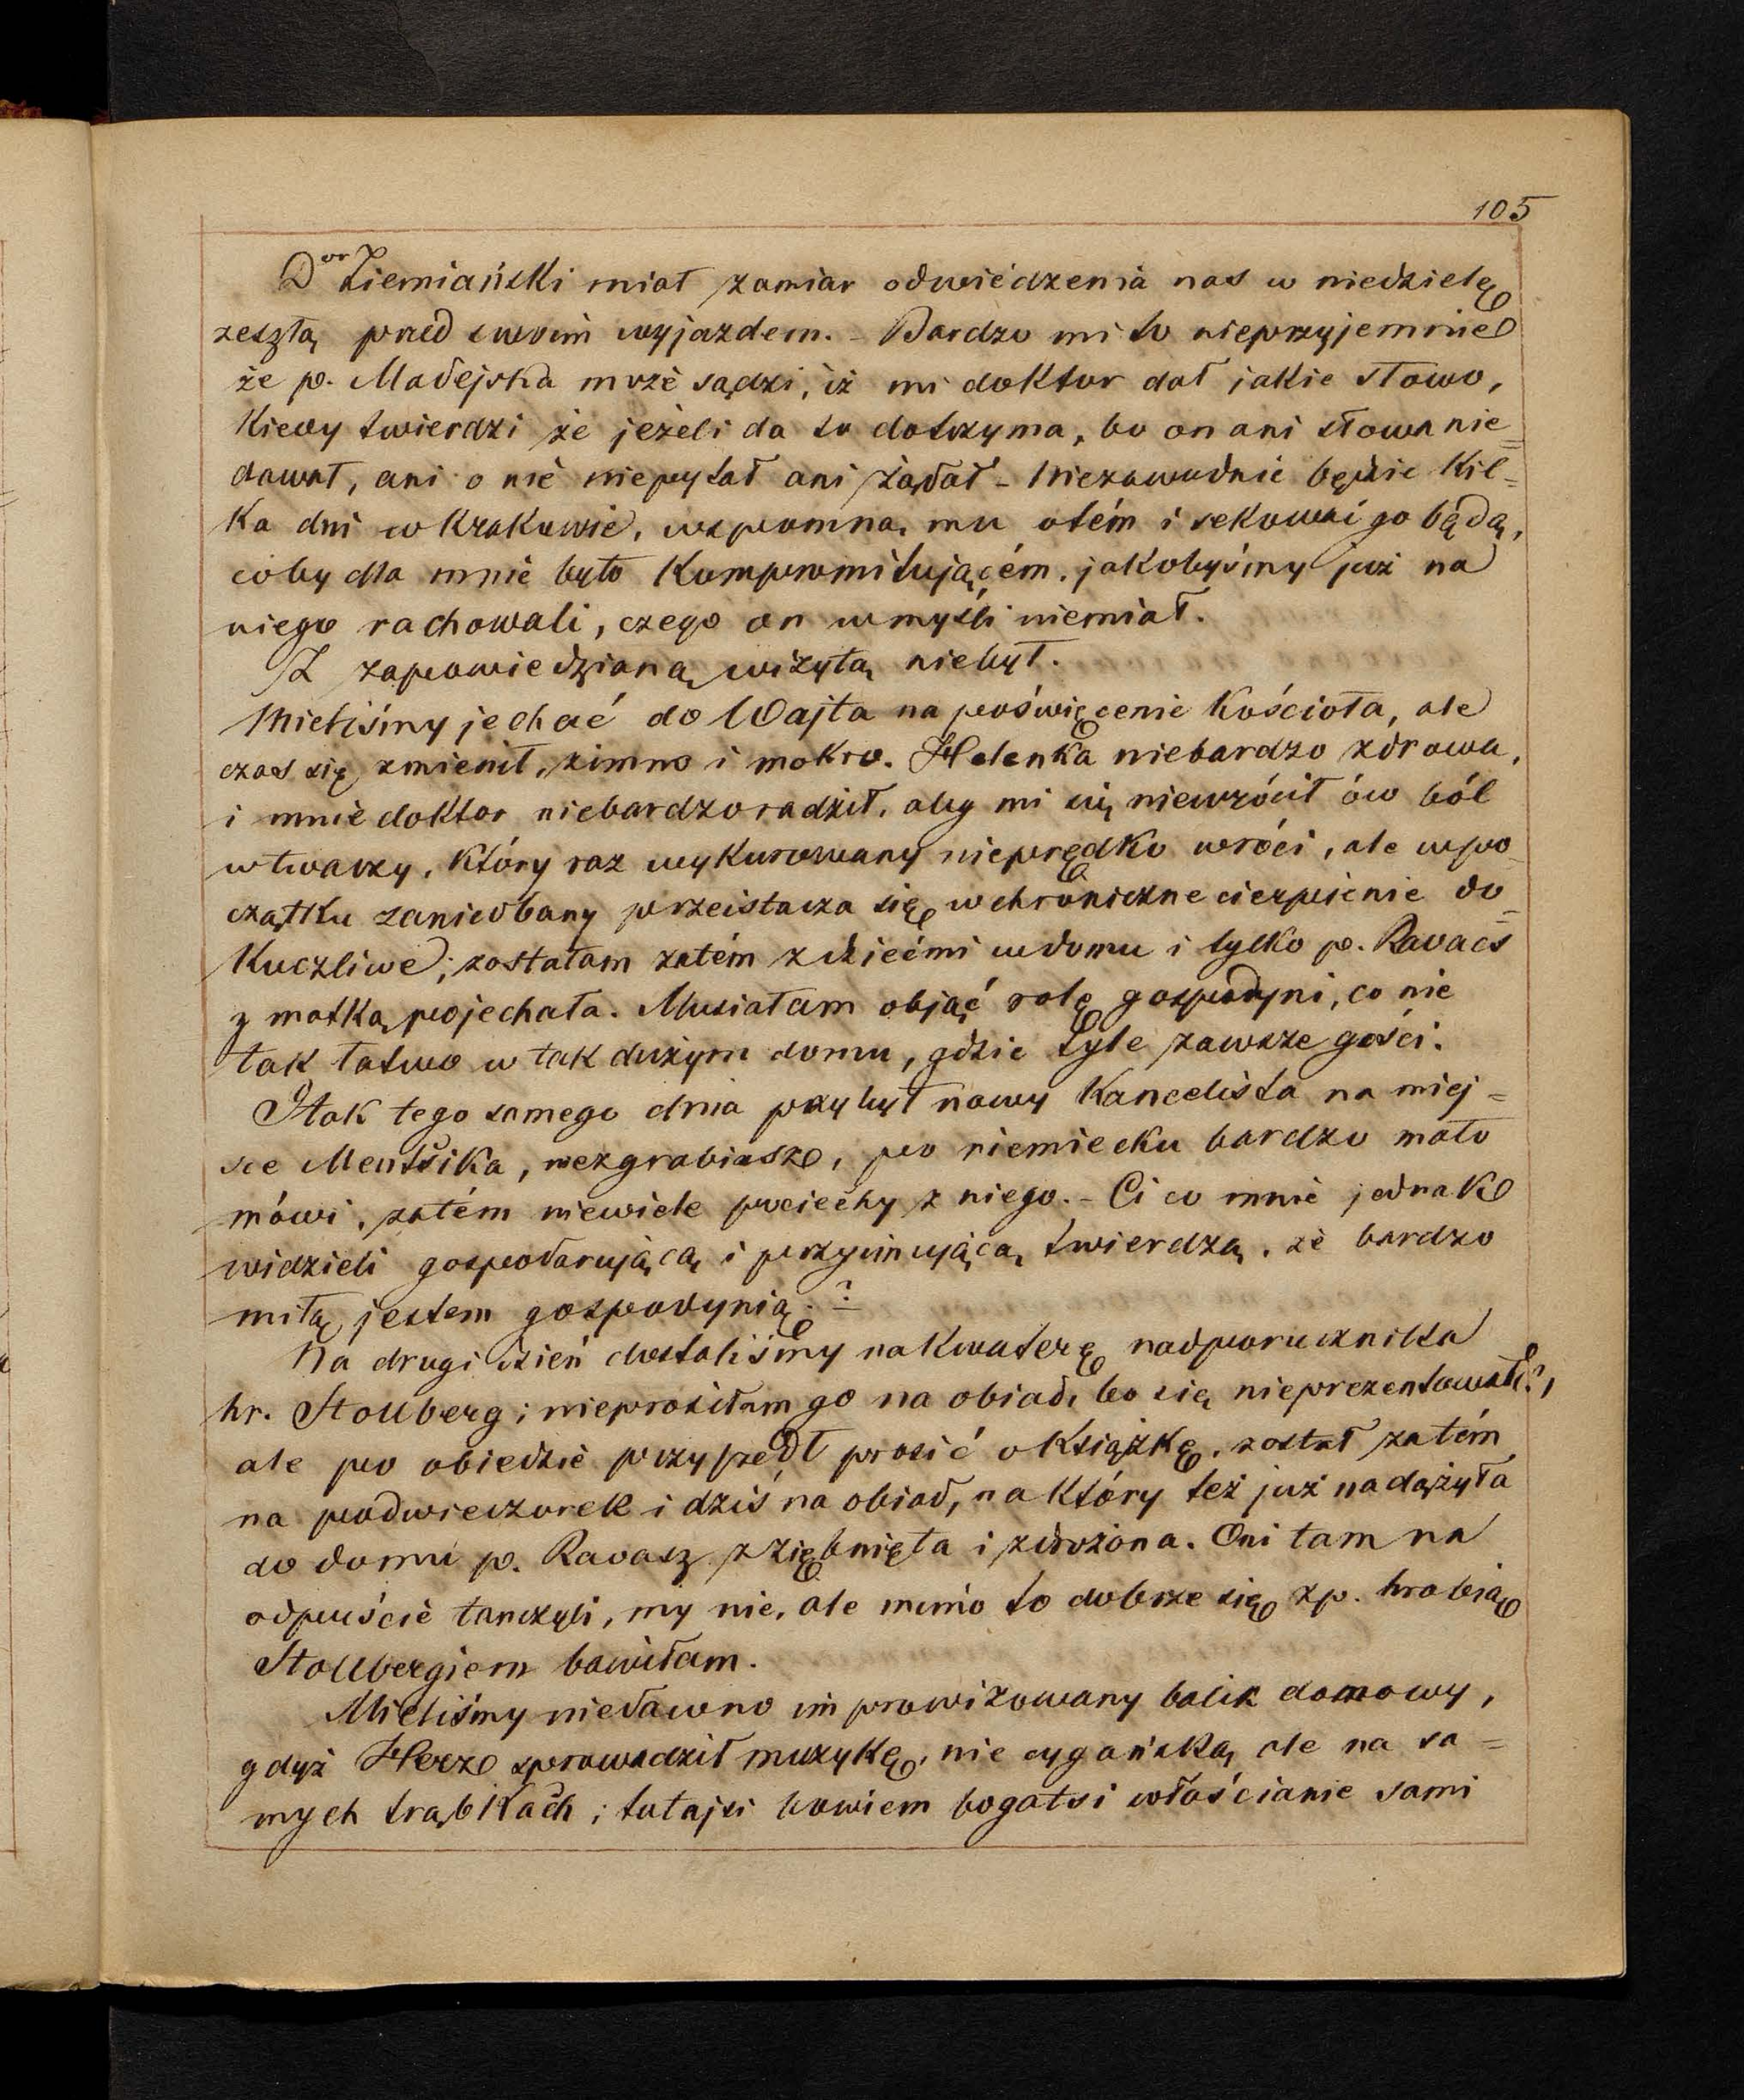 105
Dor Ziemiański miał zamiar odwiedzenia nas w niedzielę
zeszłą przed swoim wyjazdem. - Bardzo mi to nieprzyjemnie
że p. Madejska może sądzi, iż mi doktor dał jakie słowo,
kiedy twierdzi że jeżeli da to dotrzyma, bo on ani słowa nie=
dawał, ani o nie niepytał ani żądał - Niezawodnie będzie kil=
ka dni w Krakowie, wspomną mu otém i sekować go będą,
coby dla mnie było kompromitującém, jakobyśmy już na
niego rachowali, czego on w myśli niemiał.
Z zapowiedzianą wizytą niebył.
Mieliśmy jechać do Wajta na poświęcenie kościoła, ale
czas się zmienił, zimno i mokro. Helenka niebardzo zdrowa,
i mnie doktor niebardzo radził, aby mi się niewrócił ów ból
w twarzy, który raz wykurowany nieprędko wróci, ale w po=
czątku zaniedbany przeistacza się w chroniczne cierpienie do=
kuczliwe; zostałam zatém z dziećmi w domu i tylko p. Ravacs
z matką pojechała. Musiałam objąć rolę gospodyni, co nie
tak łatwo w tak dużym domu, gdzie tyle zawsze gości.
Itak tego samego dnia przybył nowy kancelista na miej=
sce Mentšika, niezgrabiasz, po niemiecku bardzo mało
mówi, zatém niewiele pociechy z niego. - Ci co mnie jednak
widzieli gospodarującą i przyjmującą twierdzą, że bardzo
miłą jestem gospodynią. ?
Na drugi dzień dostaliśmy na kwaterę nadporucznika
hr. Stollberg; nieprosiłam go na obiad, bo się nieprezentował?,
ale po obiedzie przyszedł prosić o książkę, został zatém
na podwieczorek i dziś na obiad, na który też już nadążyła
do domu p. Ravasz zziębnięta i zdrożona. Oni tam na
odpuście tańczyli, my nie, ale mimo to dobrze się z p. hrabią
Stollbergiem bawiłam.
Mieliśmy niedawno improwizowany balik domowy,
gdyż Herz sprowadził muzykę, nie cygańską ale na sa=
mych trąbkach; tutajsi bowiem bogatsi włościanie sami